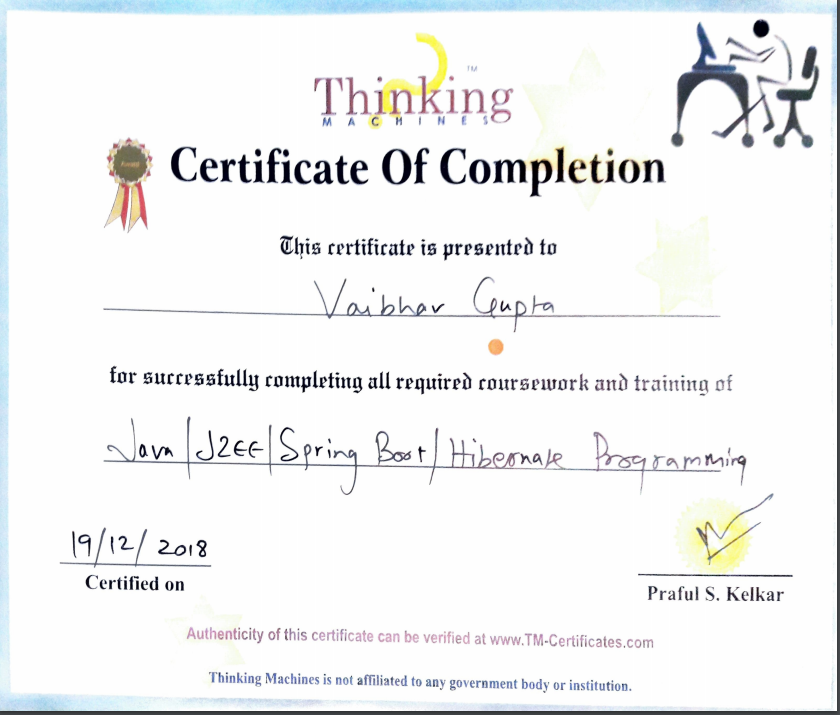 Thinking™
MACHINES
Certificate Of Completion
This certificate is presented to
Vaibhav Gupta
for successfully completing all required coursework and training of
Java/J2EE/Spring Boot/Hibernate Programming
19/12/2018
Certified on
Praful S. Kelkar
Authenticity of this certificate can be verified at www.TM-Certificates.com
Thinking Machines is not affiliated to any government body or institution.